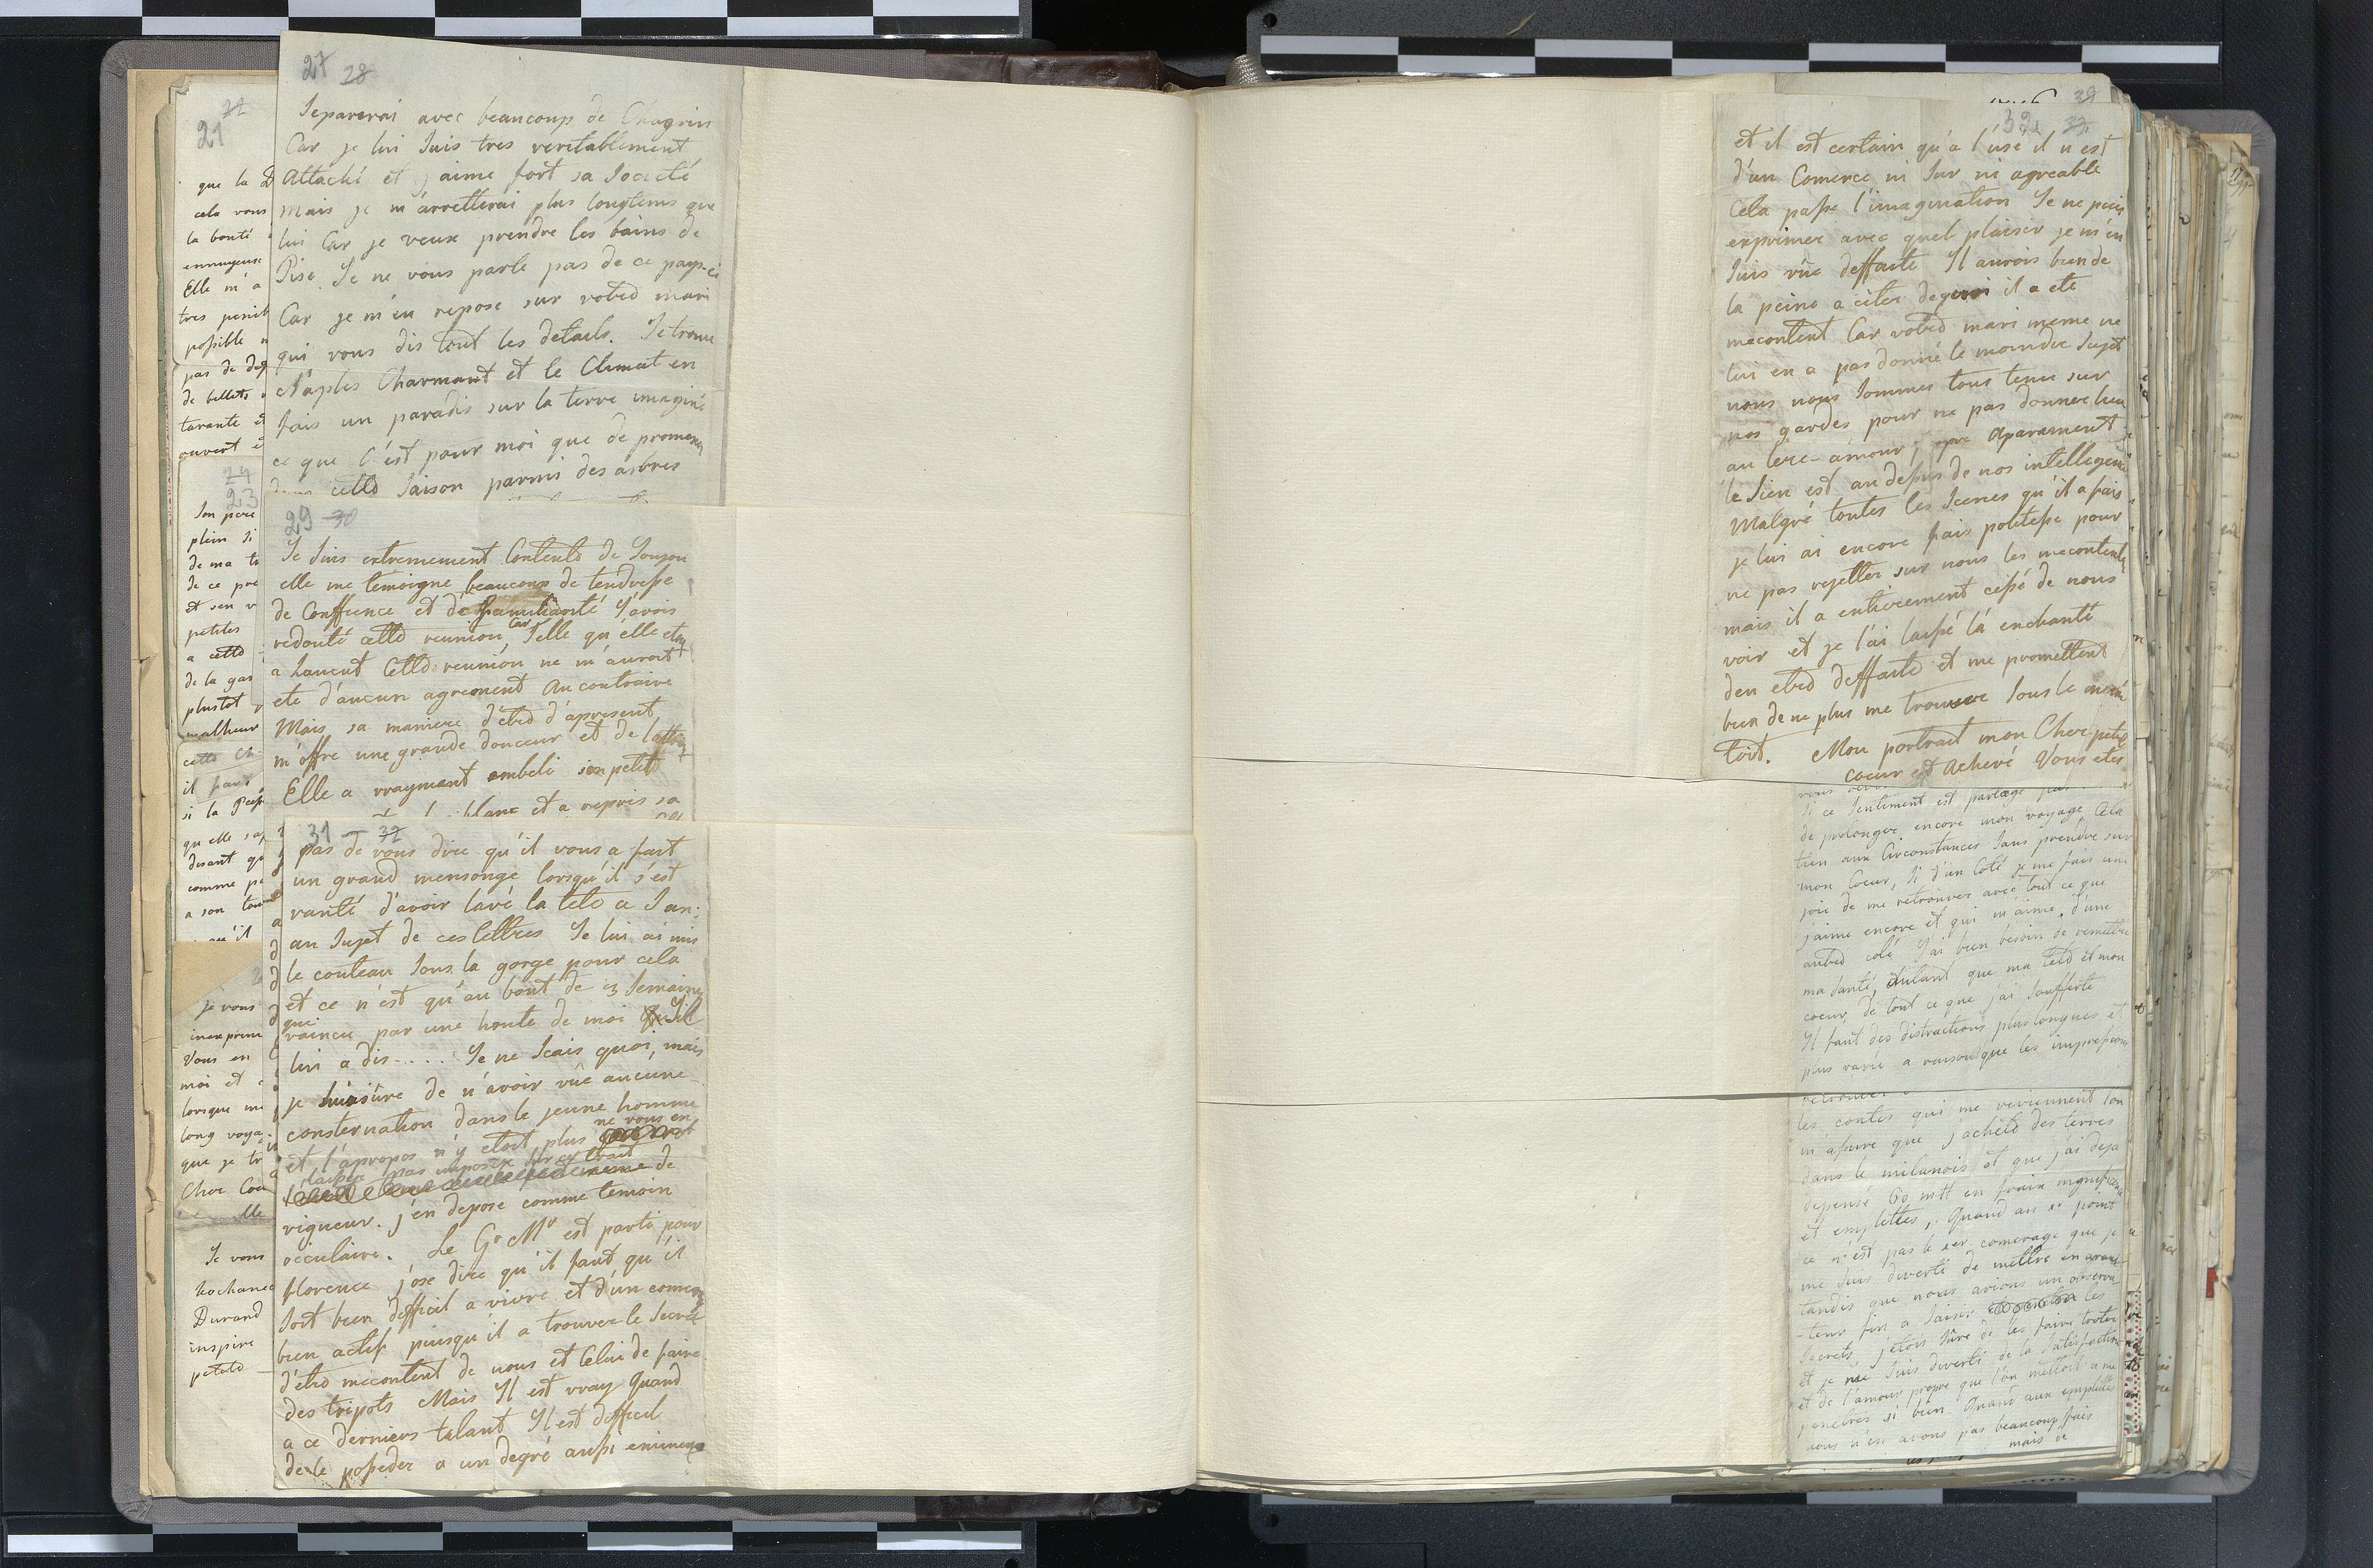 22
21
que la D
cela vous
la bonté
ennuyeuse
Elle m'a
tres penib
possible
pas de
de billets
tarante et
ouvert
24
23
son pere
plein si
de ma
de ce pre
et sen
petites
a cette
de la gar
plustot
malheur
cette ch
il faut
si la
qu elle
disant qu
comme pe
a son tou
qu'il
je vous
inexprim
Vous en
moi et
lorsque
long voya
que je
Cher Coeu
Je vous
kochanec
Durand
inspire
petite
27 28
separerai avec beaucoup de Chagrin
Car je lui suis tres veritablement
Attaché et j'aime fort sa Societé
mais je m'arretterai plus longtems que
lui Car je veux prendre les bains de
Pise. Je ne vous parle pas de ce pays-ci
Car je m'en repose sur votre mari
qui vous dis tout les details. Je trouve
Naples Charmant et le Climat en
fais un paradis sur la terre imaginé
ce que C'est pour moi que de promener
dans cette Saison parmis des arbres
29 30
Je suis extremement Contente de Souzon
elle me temoigne beaucoup de tendresse
de Conffience et de familiarité J'avois
redouté cette reunion, Car Telle qu'elle etoit
a Lancut Cette reunion ne m'auroit
ete d'aucun agrement Au contraire
Mais sa maniere d'etre d'apresent
m'offre une grande douceur et de l'attrait
Elle a vrayment embeli son petit
blanc et a repris sa
31 32
pas de vous dire qu'il vous a fait
un grand mensonge lorsqu'il s'est
vanté d'avoir lavé la tete a Jan:
au Sujet de ces lettres Je lui ai mis
le couteau sous la gorge pour cela
et ce n'est qu'au bout de 3 Semaines
que vaincu par une honte de moi qu'Il
lui a dis..... Je ne Scais quoi, mais
je suis sûre de n'avoir vûe aucune
consternation dans le jeune homme
et l'apropos n'y etoit plus ne vous en
laissez pas imposer sur ce trait de
vigueur. j'en depose comme temoin
occulaire. Le Gr Mr est parti pour
florence j'ose dire qu'il faut qu'il
soit bien difficil a vivre et d'un comerce
bien actif puisqu'il a trouver le Secret
d'etre mecontent de nous et Celui de faire
des tripots Mais Il est vray Quand
a ce derniers talant Il est difficil
de le posseder a un degré aussi eminent
39
32 33
et il est certain qu'a l'usé il n'est
d'un Comerce ni Sur ni agreable
Cela passe l'imagination Je ne puis
exprimer avec quel plaisir je m'en
suis vûe deffaite Il aurois bien de
la peine a citer dequoi il a ete
mecontent Car votre mari meme ne
lui en a pas donné le moindre Sujet
nous nous sommes tous tenu sur
nos gardes pour ne pas donner lieu
au tere-amour, Aparament
le Sien est au dessus de nos intelligence
Malgré toutes les Scenes qu'il a fais
je lui ai encore fais politesse pour
ne pas rejetter sur nous les mecontente
mais il a entierement cessé de nous
voir et je l'ai laissé là enchanté
d'en etre deffaite et me promettent
bien de ne plus me trouver sous le meme
toit. Mon portrait mon Cher petit
Coeur est Achevé Vous etes
si ce Sentiment est partagé
de prolonger encore mon voyage, Cela
tien aux Circonstances Sans prendre sur
mon Coeur, Si d'un Coté je me fais une
joie de me retrouver avec tout ce que
j'aime encore et qui m'aime, d'une
autre coté J'ai bien besoin de remettre
ma santé, Autant que ma tete et mon
coeur de tout ce que j'ai soufferte
Il faut des distractions plus longues et
plus varié a raison que les impressions
les contes qui me reviennent l'on
m'assure que j'achete des terres
dans le milanois et que j'ai deja
depensé 60 m# en frais magnificence
et emplettes, Quand au 1er point
ce n'est pas le 1er comerage que je
me suis diverti de mettre en avant
tandis que nous avions un observa
-teur fin a Saisir les
Secrets j'etois sûre de les faire trotter
et je me suis diverti de la Satisfaction
et de l'amour propre que l'on mettoit a me
penetrer si bien. Quand aux emplettes
nous n'en avons pas beaucoup fais
mais de